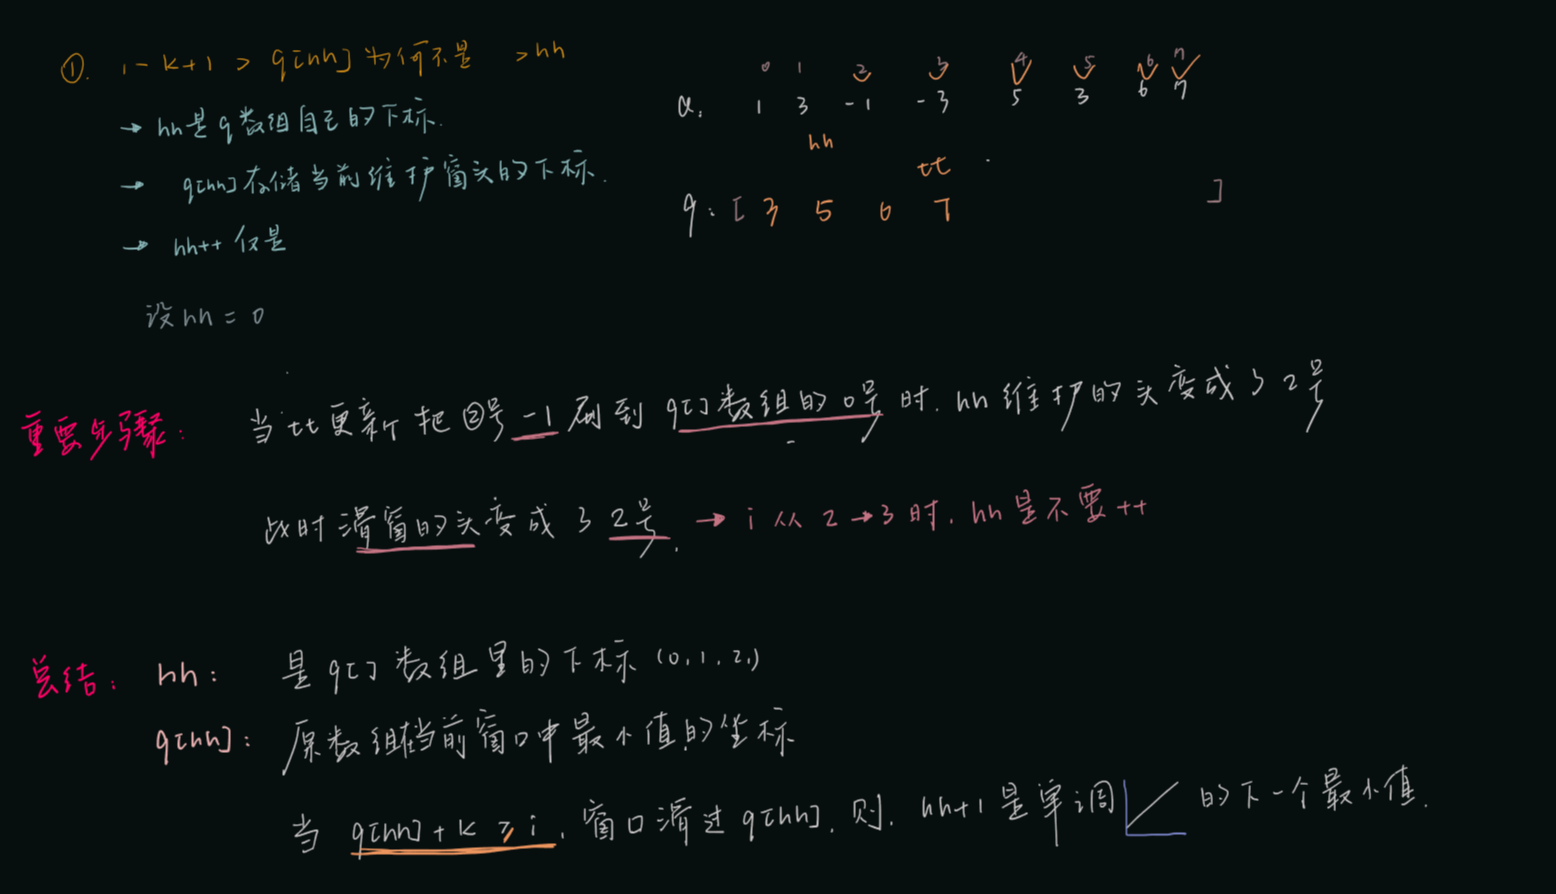 ①. i-k+1 > q[hh] 为何不是 >hh
→ hh是q数组自己的下标.
→ q[hh]存储当前维护窗头的下标.
→ hh++ 仅是
设hh = 0
0 1 2 3 4 5 6 7
a. 1 3 -1 -3 5 3 6 7
hh
tt
q: [ 3 5 6 7 ]
重要步骤: 当tt更新把②号 -1 刷到 q[]数组的0号时. hh维护的头变成了2号
此时滑窗的头变成了2号. → i从 2→3时. hh是不要++
总结: hh: 是q[]数组里的下标 (0,1,2,)
q[hh]: 原数组在当前窗口中最小值的坐标
当 q[hh]+k ≥ i, 窗口滑过q[hh]. 则. hh+1是单调 的下一个最小值.